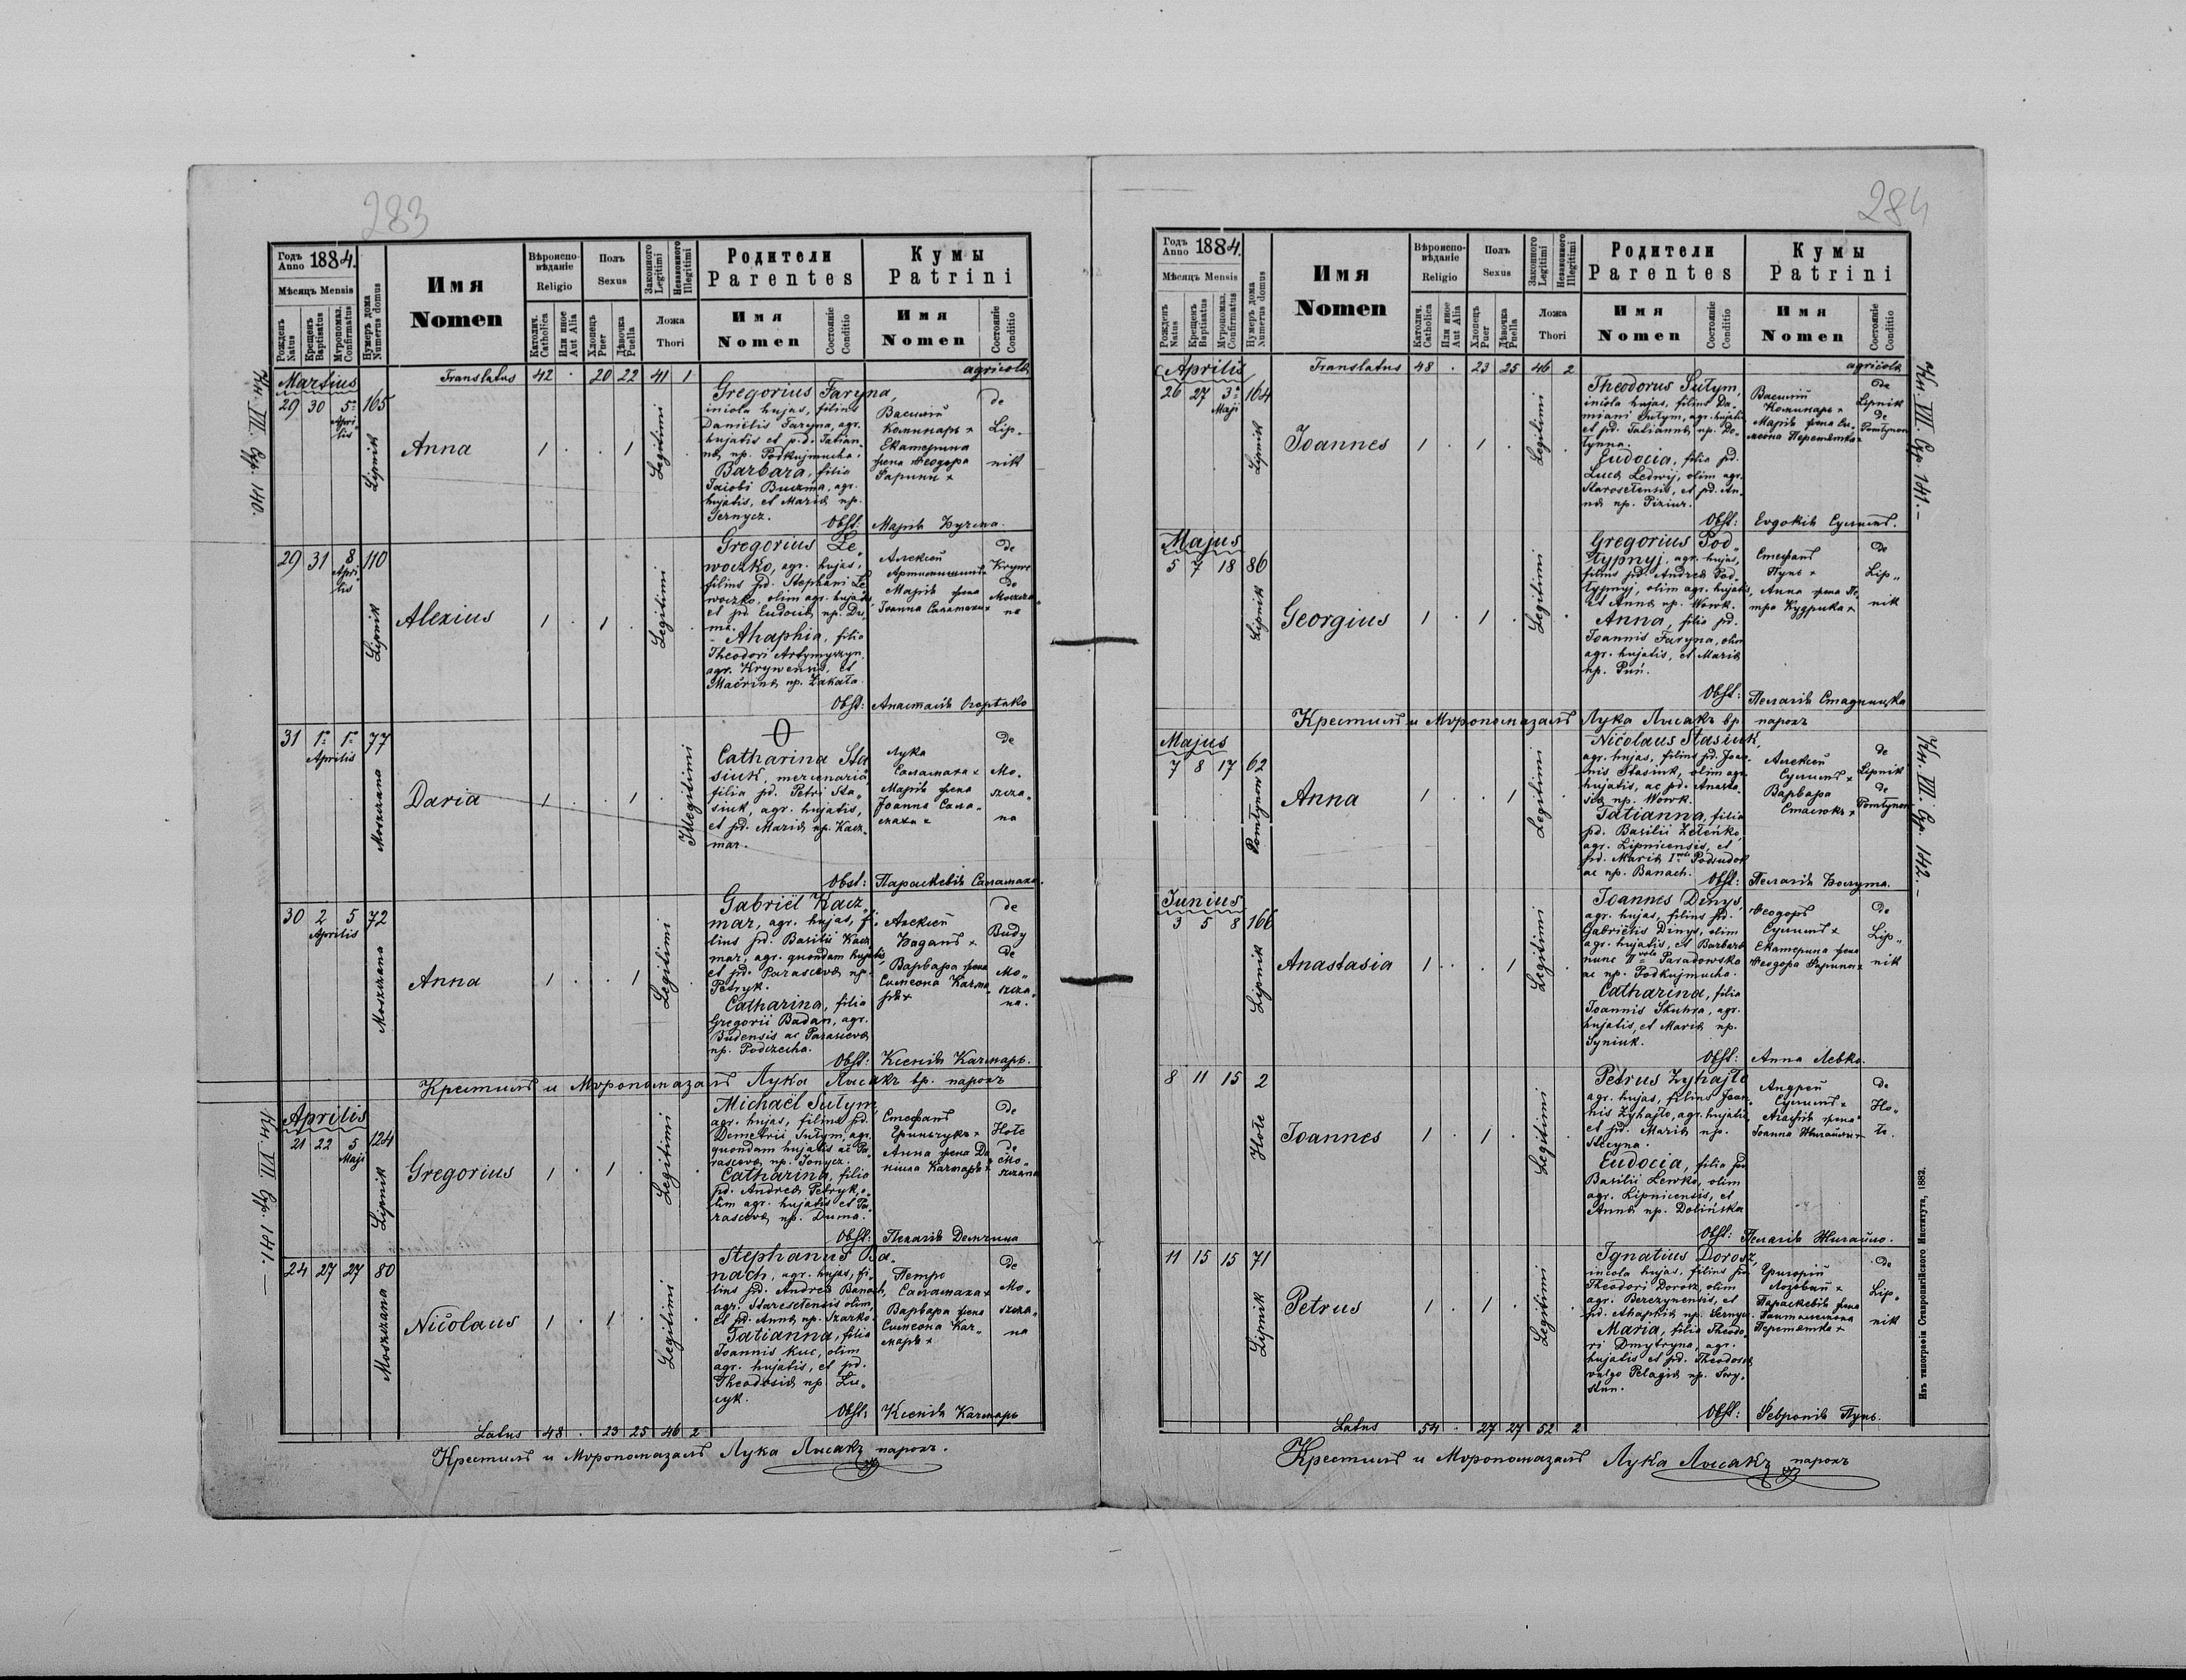 283
Годъ Anno 1884.
Мѣсяцъ Mensis
Рожденъ Natus
Крещенъ Baptisatus
Мѵропомаз. Confirmatus
Нумеръ дома Numerus domus
Имя
Nomen
Вѣроиспо-
вѣданіе
Religio
Католич. Catholica
Или иное Aut Alia
Полъ
Sexus
Хлопецъ Puer
Дѣвочка Puella
Законного Legitimi
Незаконного Illegitimi
Ложа
Thori
Родители
Parentes
Имя
Nomen
Состояніе Conditio
Кумы
Patrini
Имя
Nomen
Состояніе Conditio
Translatus 42 . 20 22 41 1
agricolæ
Кн. VII. Стр. 140.
Martius
29 30 5ª Aprilis 165
Lipnik
Anna
1 . . 1
Legitimi
Gregorius Faryna,
incola hujas, filius
Danielis Faryna, agr.
hujatis et p.d. Tatian-
næ np. Podkujmucha.
Barbara, filia
Jacobi Buczma, agr.
hujatis, et Mariæ np.
Sernycz.
Василій
Коминарь +
Екатерина
жена Ѳеодора
Фарины +
de
Lip-
nik
Obst: Марія Бучма.
29 31 8 Aprilis 110
Lipnik
Alexius
1 . 1 .
Legitimi
Gregorius Le„
woczko, agr. hujas,
filius pd. Stephani Le
woczko, olim agr. hujatis
et pd. Eudociæ np. Du„
ma.
Ahaphia, filia
Theodori Artymyszyn,
agr. Krywensis, et
Macrinæ np. Zakała.
Алексій
Артимишинъ +
Марія жена
Іоанна Саламахи +
de
Krywe
de
Moszcza„
na
Obst: Анастасія Огорѣлко
31 1ª 1ª Aprilis 77
Moszczana
Daria
1 . . 1
Illegitimi
O
Catharina Sta
siuk, mercenaria
filia pd. Petri Sta„
siuk, agr. hujatis,
et pd. Mariæ np. Kacz„
mar.
Лука
Саламаха +
Марія жена
Іоанна Сала„
махи +
de
Mo„
szcza„
na
Obst: Параскевія Саламаха.
30 2 5 Aprilis 72
Moszczana
Anna
1 . . 1
Legitimi
Gabriël Kacz„
mar, agr. hujas, fi„
lius pd. Basilii Kacz„
mar, agr. quondam hujatis,
et pd. Parascevæ np.
Petryk.
Catharina, filia
Gregorii Badan, agr.
Budensis ac Parascevæ
np. Podczecha.
Алексій
Баданъ +
Варвара жена
Симеона Качма„
ря +
de
Budy
de
Mo„
szcza„
na.
Obst: Ксенія Качмарь.
Крестилъ и Мѵропомазалъ Лука Лисакъ вр. парохъ
Кн. VII. Стр. 141.
Aprilis
21 22 5 Maji 124
Lipnik
Gregorius
1 . 1 .
Legitimi
Michaël Sułym,
agr. hujas, filius pd.
Demetrii Sułym, agr.
quondam hujatis ac Pa„
rascevæ np. Jonycz.
Catharina, filia
pd. Andreæ Petryk, o„
lim agr. hujatis et Pa„
rascevæ np. Duma.
Стефанъ
Гринчукъ +
Анна жена Да
ніила Качмарь +
de
Hołe
de
Mo„
szczana
Obst: Пелагія Демчина
24 27 27 80
Moszczana
Nicolaus
1 . 1 .
Legitimi
Stephanus Ba„
nach, agr. hujas, fi„
lius pd. Andreæ Banach,
agr. Starosełensis olim,
et pd. Annæ np. Szarko.
Tatianna, filia
Joannis Kuc, olim
agr. hujatis, et pd.
Theodosiæ np. Lu„
cyk.
Петро
Саламаха +
Варвара жена
Симеона Кач„
марь +
de
Mo„
szcza„
na
Obst: Ксенія Качмарь
Latus 48 . 23 25 46 2
Крестилъ и Мѵропомазалъ Лука Лисакъ парохъ.
284
Годъ Anno 1884.
Мѣсяцъ Mensis
Рожденъ Natus
Крещенъ Baptisatus
Мѵропомаз. Confirmatus
Нумеръ дома Numerus domus
Имя
Nomen
Вѣроиспо-
вѣданіе
Religio
Католич. Catholica
Или иное Aut Alia
Полъ
Sexus
Хлопецъ Puer
Дѣвочка Puella
Законного Legitimi
Незаконного Illegitimi
Ложа
Thori
Родители
Parentes
Имя
Nomen
Состояніе Conditio
Кумы
Patrini
Имя
Nomen
Состояніе Conditio
Translatus 48 . 23 25 46 2
agricolæ
Кн. VII. Стр. 141.
Aprilis
26 27 3ª Maji 164
Lipnik
Joannes
1 . 1 .
Legitimi
Theodorus Sułym,
incola hujas, filius Da„
miani Sułym, agr. hujatis
et pd. Tatiannæ np. Do„
łynna.
Eudocia, filia pd.
Lucæ Ledwij, olim agr.
Starosełensis, et pd. An„
næ np. Piziur.
Василій
Коминарь +
Марія жена Си„
меона Перетятка +
de
Lipnik
de
Pomłynow
Obst: Евдокія Сулимъ.
Majus
5 7 18 86
Lipnik
Georgius
1 . 1 .
Legitimi
Gregorius Pod„
łypnyj, agr. hujas,
filius pd. Andreæ Pod„
łypnyj, olim agr. hujatis,
et Annæ np. Wowk.
Anna, filia pd.
Joannis Faryna, olim
agr. hujatis, et Mariæ
np. Puń.
Стефанъ
Пунь +
Анна жена Пе„
тра Кудрика +
de
Lip„
nik
Obst: Пелагія Стадницка
Крестилъ и Мѵропомазалъ Лука Лисакъ вр парохъ
Кн. VII. Стр. 142.
Majus
7 8 17 62
Pomłynow
Anna
1 . . 1
Legitimi
Nicolaus Stasiuk,
agr. hujas, filius pd. Joan„
nis Stasiuk, olim agr.
hujatis, ac pd. Anasta„
siæ np. Wowk.
Tatianna, filia
pd. Basilii Zełeńko,
agr. Lipnicensis, et
pd. Mariæ 1 voti Podsudok
ac np. Banach.
Алексій
Сулимъ +
Варвара
Стасюкъ +
de
Lipnik
de
Pomłynow
Obst: Пелагія Болута.
Junius
3 5 8 166
Lipnik
Anastasia
1 . . 1
Legitimi
Joannes Dinys,
agr. hujas, filius pd.
Gabriëlis Dinys, olim
agr. hujatis, et Barbaræ
nunc II voti Paradowska
ac np. Podkujmucha.
Catharina, filia
Joannis Skuhra, agr.
hujatis, et Mariæ np.
Syniuk.
Ѳеодоръ
Сулимъ +
Екатерина жена
Ѳеодора Фарины +
de
Lip„
nik
Obst: Анна Левко.
8 11 15 2
Hołe
Joannes
1 . 1 .
Legitimi
Petrus Zyhajło
agr. hujas, filius Joan„
nis Zyhajło, agr. hujatis
et pd. Mariæ np.
Stecyna.
Eudocia, filia pd
Basilii Lewko, olim
agr. Lipnicensis, et
Annæ np. Dolińska
Андрей
Сулимъ +
Агафія жена
Іоанна Жигайла +
de
Ho„
łe.
Obst: Пелагія Жигайло.
11 15 15 71
Lipnik
Petrus
1 . 1 .
Legitimi
Ignatius Dorosz,
incola hujas, filius pd.
Theodori Dorosz, olim
agr. Berezynensis, et
pd. Ahaphiæ np. Sernycz.
Maria, filia Theodo„
ri Dmytryna, agr.
hujatis et pd. Theodosiæ
vulgo Pelagiæ np. Swy„
stun.
Григорій
Лозовый +
Параскевія жена
Пантелеимона
Перетятка +
de
Lip„
nik
Obst: Февронія Пунь.
Latus 54 . 27 27 52 2
Крестилъ и Мѵропомазалъ Лука Лисакъ парохъ
Изъ типографіи Ставропигійского Института, 1882.